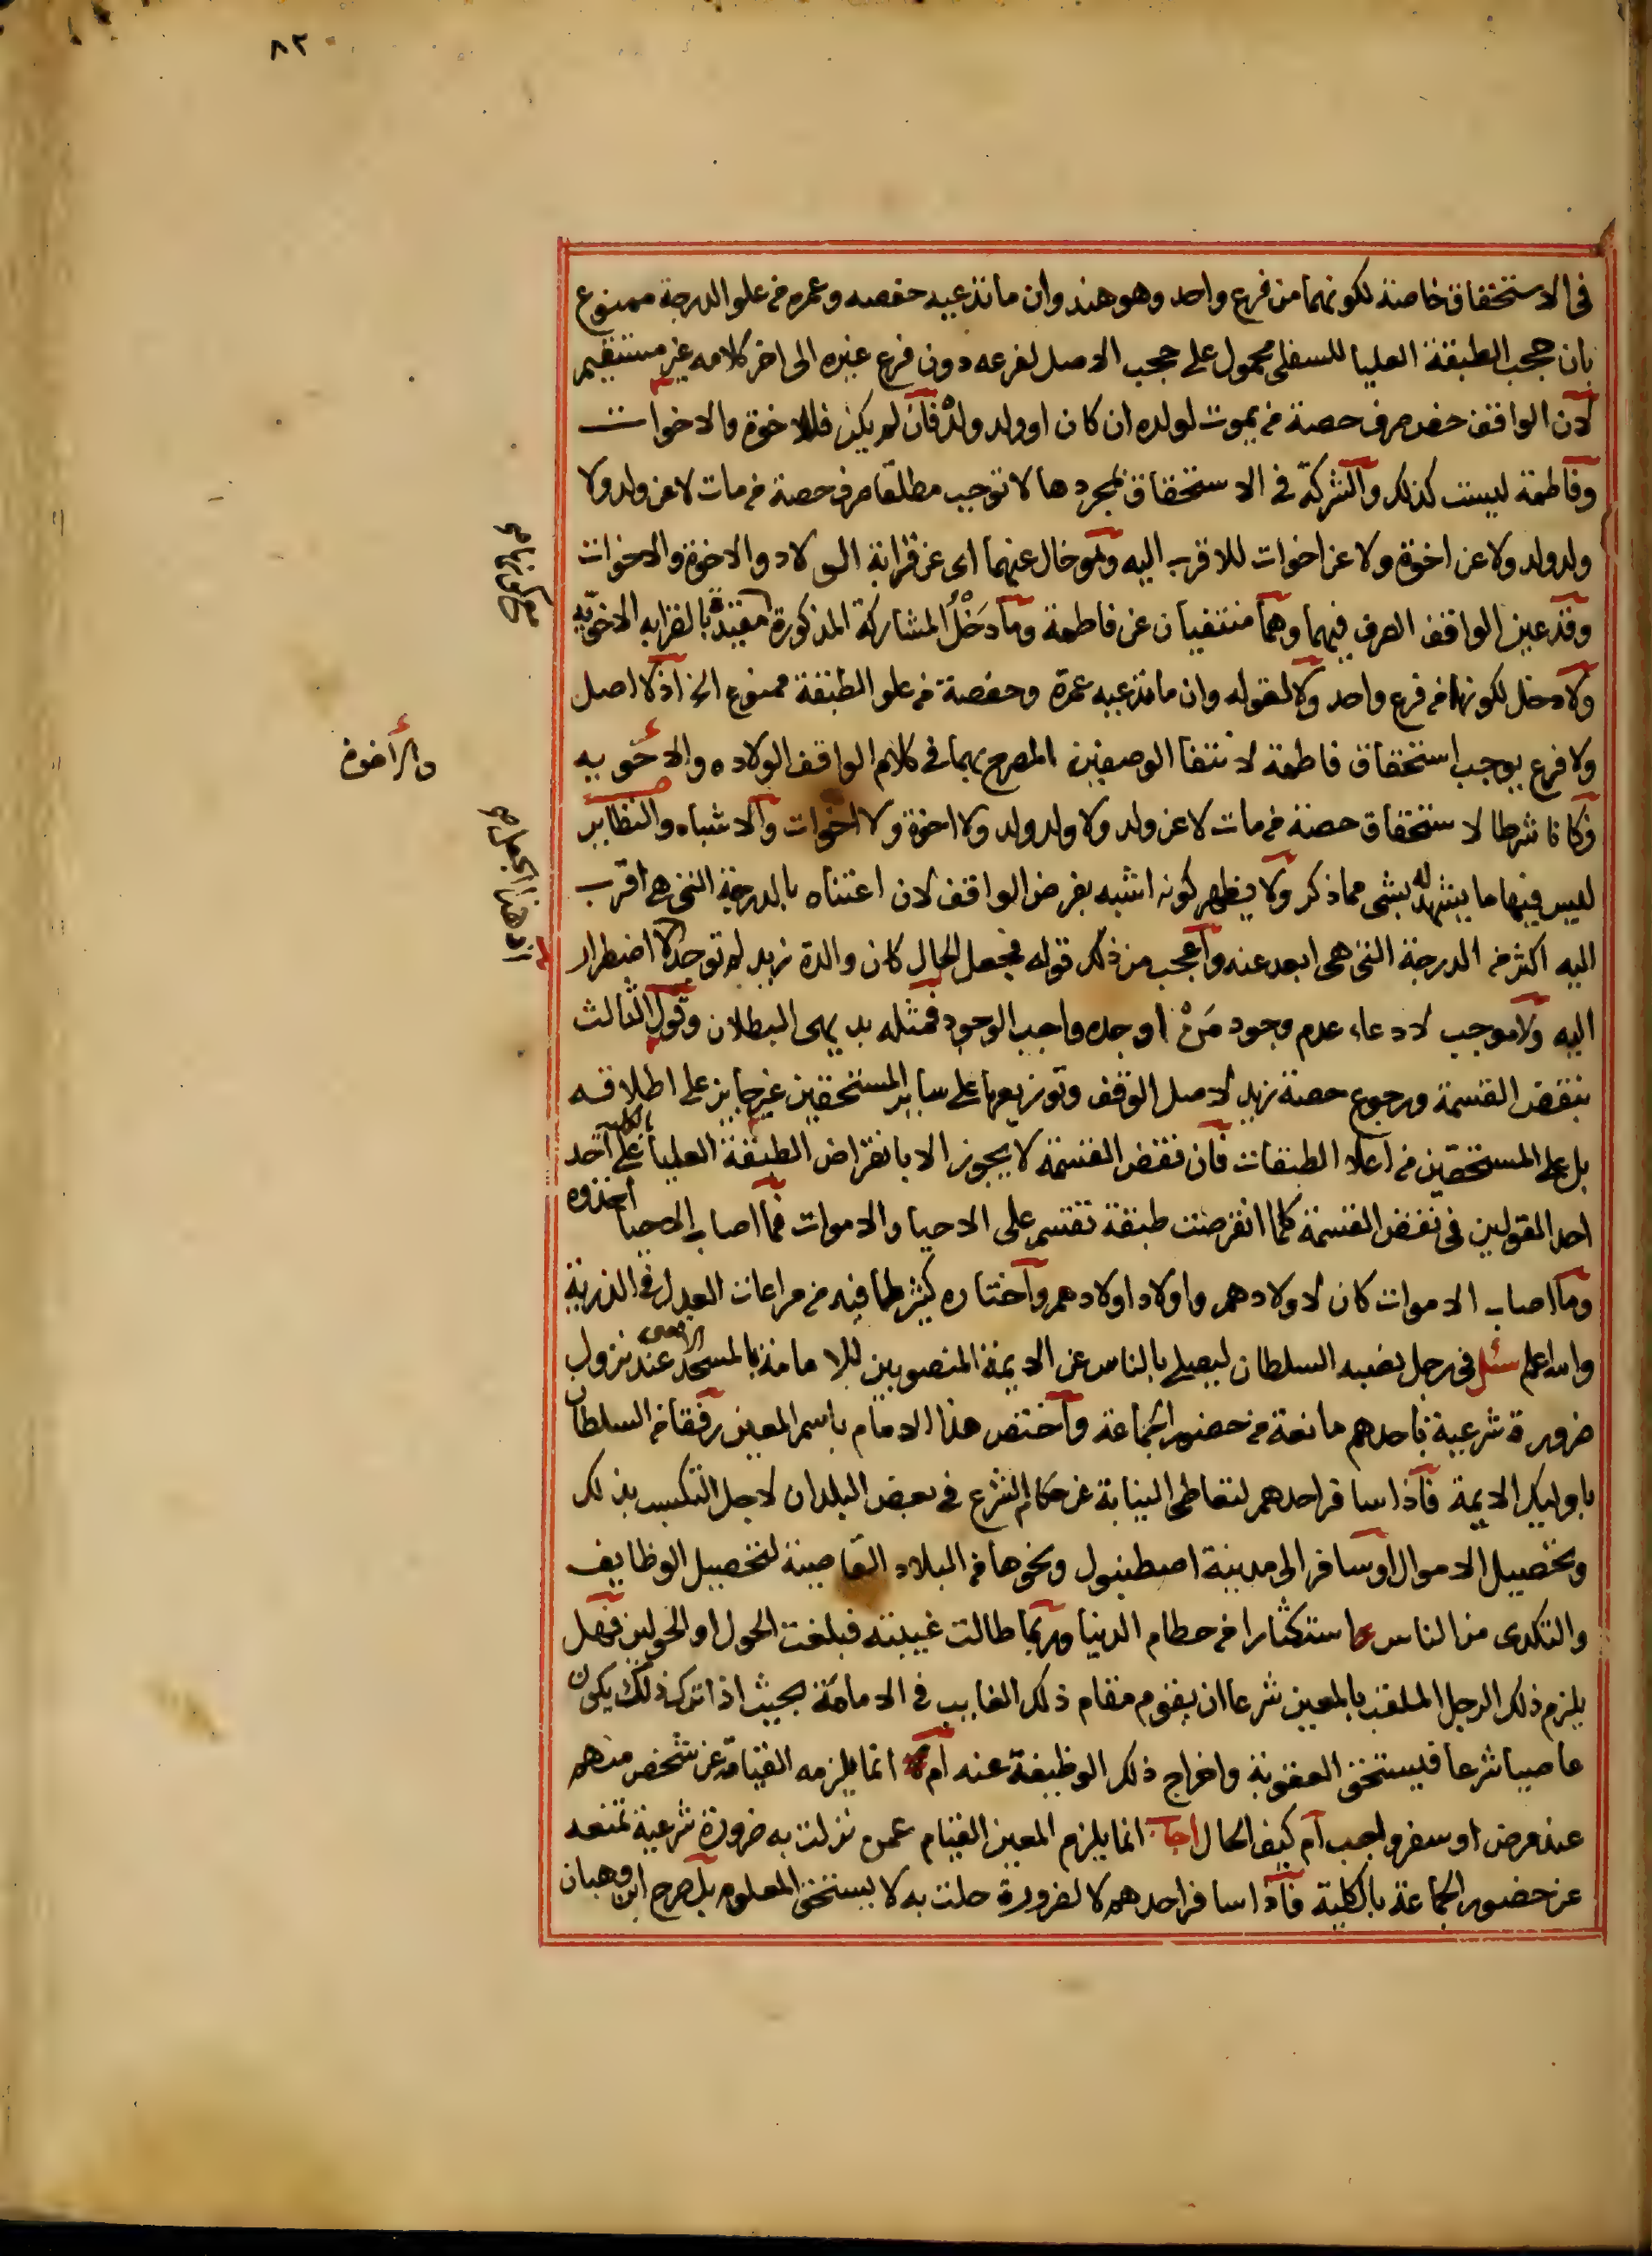 ٨٢
في الاستحقاق خاصة لكونهما من فرع واحد وهو هند وان ما تدعيه حفصه وعمره من علو الدرجة ممنوع
بان حجب الطبقة العليا للسفلى محمول على حجب الاصل لفرعه دون فرع غيره الى اخر كلامه غير مستقيم
لان الواقف خص صرف حصة من يموت لولده ان كان او ولد ولد فان لم يكن فللاخوة والاخوات
وفاطمة ليست كذلك والشركة في الاستحقاق بمجردها لا توجب مطلقا صرف حصة من مات لا عن ولد ولا
ولد ولد ولا عن اخوة ولا عن اخوات للاقرب اليه ولو خال عنهما اى عن قرابة الولاد والاخوة والاخوات
وقد عين الواقف الصرف فيهما وهما منتفيان عن فاطمة وما دَخْلُ المشاركة المذكورة مقيدة بالقرابه الاخويه
ولا دخل لكونها من فرع واحد ولا لقوله وان ما تدعيه عمرة وحفصة من علو الطبقة ممنوع الخ اذ لا اصل
ولا فرع يوجب استحقاق فاطمة لانتفا الوصفين المصرح بهما في كلام الواقف الولاده والاخويه
وكانا شرطا لاستحقاق حصة من مات لا عن ولد ولا ولد ولد ولا اخوة ولا اخوات والاشباه والنظاير
ليس فيها ما يشهد له بشى مما ذكر ولا يظهر كونه اشبه بغرض الواقف لان اعتناه بالدرجة التي هي اقرب
اليه اكثر من الدرجة التي هي ابعد عنه واعجب من ذلك قوله فجعل الحال كان والدة زيد لم توجد لا اضطرار
اليه ولا موجب لادعاء عدم وجود مَنْ اوجده واجب الوجود فمثله بديهى البطلان وقول الثالث
بنقض القسمة ورجوع حصة زيد لاصل الوقف وتوزيعها على ساير المستحقين غير جايز على اطلاقه
بل على المستحقين من اعلا الطبقات فان نقض القسمة لا يجوز الا بانقراض الطبقة العليا بالكلية على احد
احد القولين في نقض القسمة كلما انقرضت طبقة تقسم على الاحيا والاموات فما اصاب الاحيا اخذوه
وما اصاب الاموات كان لاولادهم واولاد اولادهم واختاره كثير لما فيه من مراعات العدل في الذرية
والله اعلم سئل في رجل نصبه السلطان ليصلي بالناس عن الايمة المنصوبين للامامة بالمسجد الاقصى عند نزول
ضرورة شرعية باحدهم مانعة من حضور الجماعة واختص هذا الامام باسم المعين رفقا من السلطان
باوليك الايمة فاذا سافر احدهم لتعاطى النيابة عن حكام الشرع في بعض البلدان لاجل التكسب بذلك
وتحصيل الاموال او سافر الى مدينة اصطنبول ونحوها من البلاد القاصية لتحصيل الوظايف
والتكدى من الناس استكثارا من حطام الدنيا وربما طالت غيبته فبلغت الحول او الحولين فهل
يلزم ذلك الرجل الملقب بالمعين شرعا ان يقوم مقام ذلك الغايب في الامامة بحيث اذا ترك ذلك يكون
عاصيا شرعا فيستحق العقوبة واخراج ذلك الوظيفة عنه ام لا انما يلزمه القيام عن شخص منهم
عند مرض او سفر واجب ام كيف الحال اجاب انما يلزم المعين القيام عمن نزلت به ضرورة شرعية تمنعه
عن حضور الجماعة بالكلية فاذا سافر احدهم لا لضرورة حلت به لا يستحق المعلوم بل صرح ابن وهبان
والاخوة